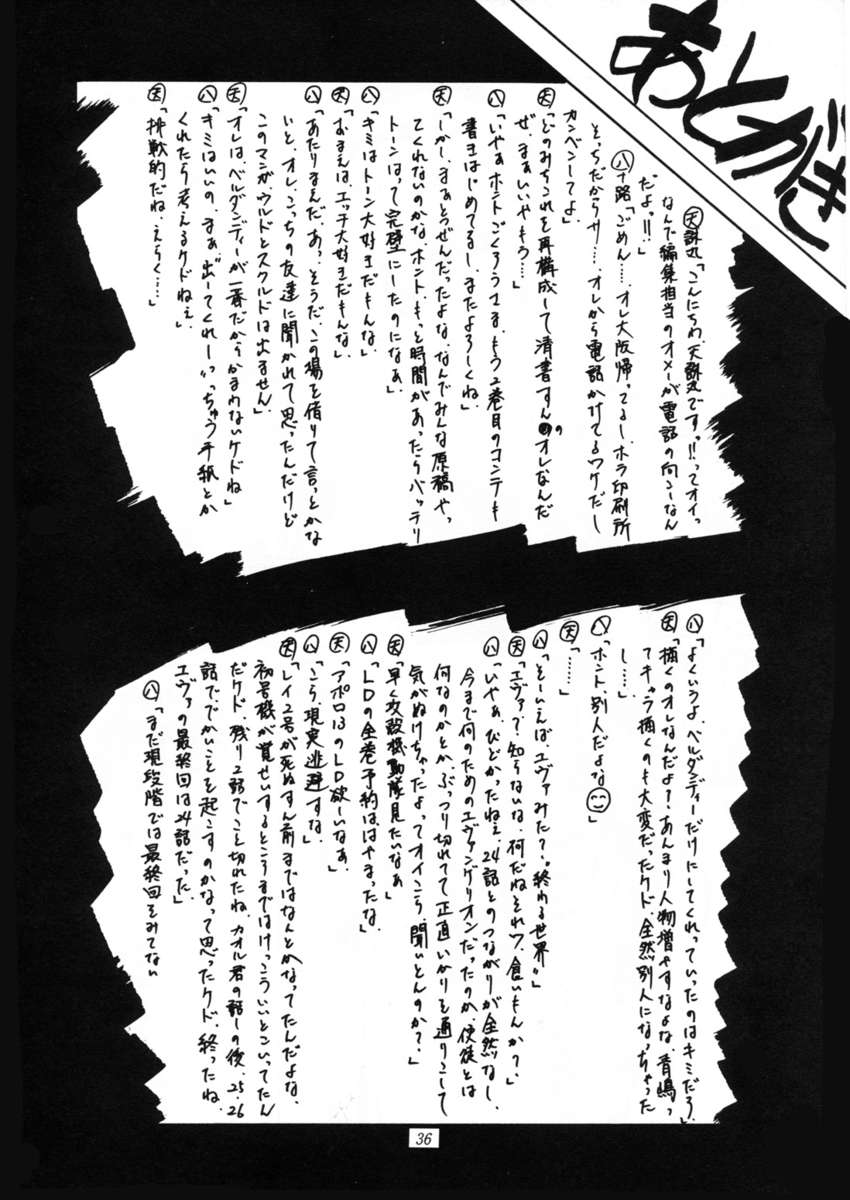 あとがき
天誅丸「こんにちわ、天誅丸ですっ!!ってオイっ
なんで編集担当のオメーが電話の向こーなん
だよっ!!」
八十路「ごめん……、オレ大阪帰ってるし、ホラ印刷所
そっちだからサ……、オレから電話かけてるワケだし
カンベンしてよ」
天「どのみちこれを再構成して清書すんのオレなんだ
ぜ、まぁいいやもう…」
八「いやぁホントごくろうさま、もう2巻目のコンテも
書きはじめてるし、またよろしくね」
天「しかし、まぁとうぜんだったよな、なんでみんな原稿やっ
てくれないのかな、ホント、もっと時間があったらバッチリ
トーンはって完璧にしたのになぁ」
八「キミはトーン大好きだもんな」
天「おまえは、エッチ大好きだもんな」
八「あたりまえだ、あっ、そうだ、この場を借りて言っとかな
いと、オレ、こっちの友達に聞かれて思ったんだけど
このマンガ、ウルドとスクルドは出ません」
天「オレは、ベルダンディーが一番だからかまわないケドね」
八「キミはいいの、まぁ"出ーてくれー"いっちゅう手紙とか
くれたら考えるケドねぇ」
天「挑戦的だね、えらく…」
八「よくいうよ、ベルダンディーだけにしてくれっていったのはキミだろ」
天「描くのオレなんだよ?あんまり人物増やすなよな、青嶋っ
てキャラ描くのも大変だったケド、全然別人になっちゃった
し……」
八「ホント、別人だよな」
天「……」
八「そーいえば、エヴァみた?"終わる世界"」
天「エヴァ?知らないな、何だねそれワ、食いもんか?」
八「いやぁ、ひどかったねぇ、24話とのつながりが全然なし、
今まで何のためのエヴァンゲリオンだったのか、使徒とは
何なのかとか、ぶっつり切れてて正直いかりを通りこして
気がぬけちゃったよってオイこら、聞いとんのか?」
天「早く攻殻機動隊見たいなぁ」
八「LDの全巻予約ははやまったな」
天「アポロ13のLD欲しいなぁ」
八「こら、現実逃避すな」
天「レイ2号が死ぬすん前まではなんとかなってたんだよな、
初号機が覚せいするとこうまではけっこういいとこいってたん
だケド、残り2話でこと切れたね、カオル君の話しの後、25、26
話ででかいことを起こすのかなって思ったケド、終ったね、
エヴァの最終回は24話だった」
八「まだ現段階では最終回をみてない
36